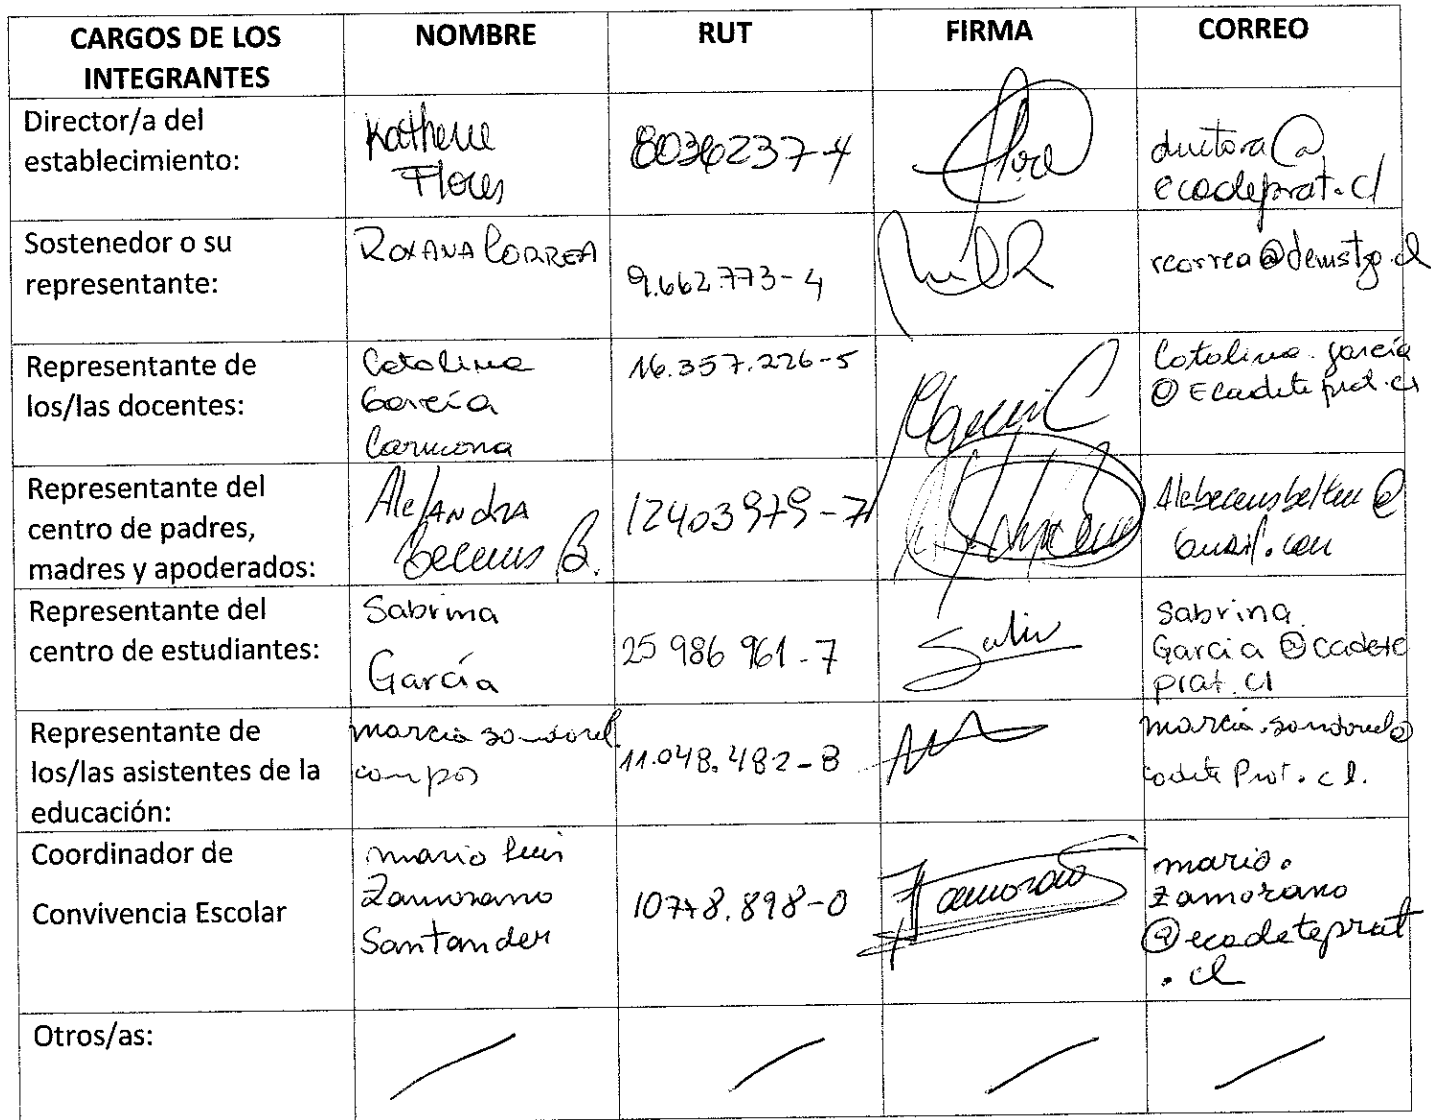 CARGOS DE LOS INTEGRANTES NOMBRE RUT FIRMA CORREO
Director/a del
establecimiento:
Katherine
Flores
directora@
ecadeprat.cl
Sostenedor o su
representante:
ROXANA CORREA
9.662.773-4
rcorrea@demstgo.cl
Representante de
los/las docentes:
Catalina
García
Carmona
16.357.226-5
Catalina.garcía
@Ecadeteprat.cl
Representante del
centro de padres,
madres y apoderados:
Alejandra
B.
12403979-7
Representante del
centro de estudiantes:
Sabrina
García
25 986 961-7
Sabrina.
Garcia@cadete
prat.cl
Representante de
los/las asistentes de la
educación:
marcia sandoval
campos
11.048.482-8
marcia.sandoval@
cadete Prat.cl.
Coordinador de
Convivencia Escolar
mario luis
Zamorano
Santander
mario.
zamorano
@ecadeteprat
.cl
Otros/as: